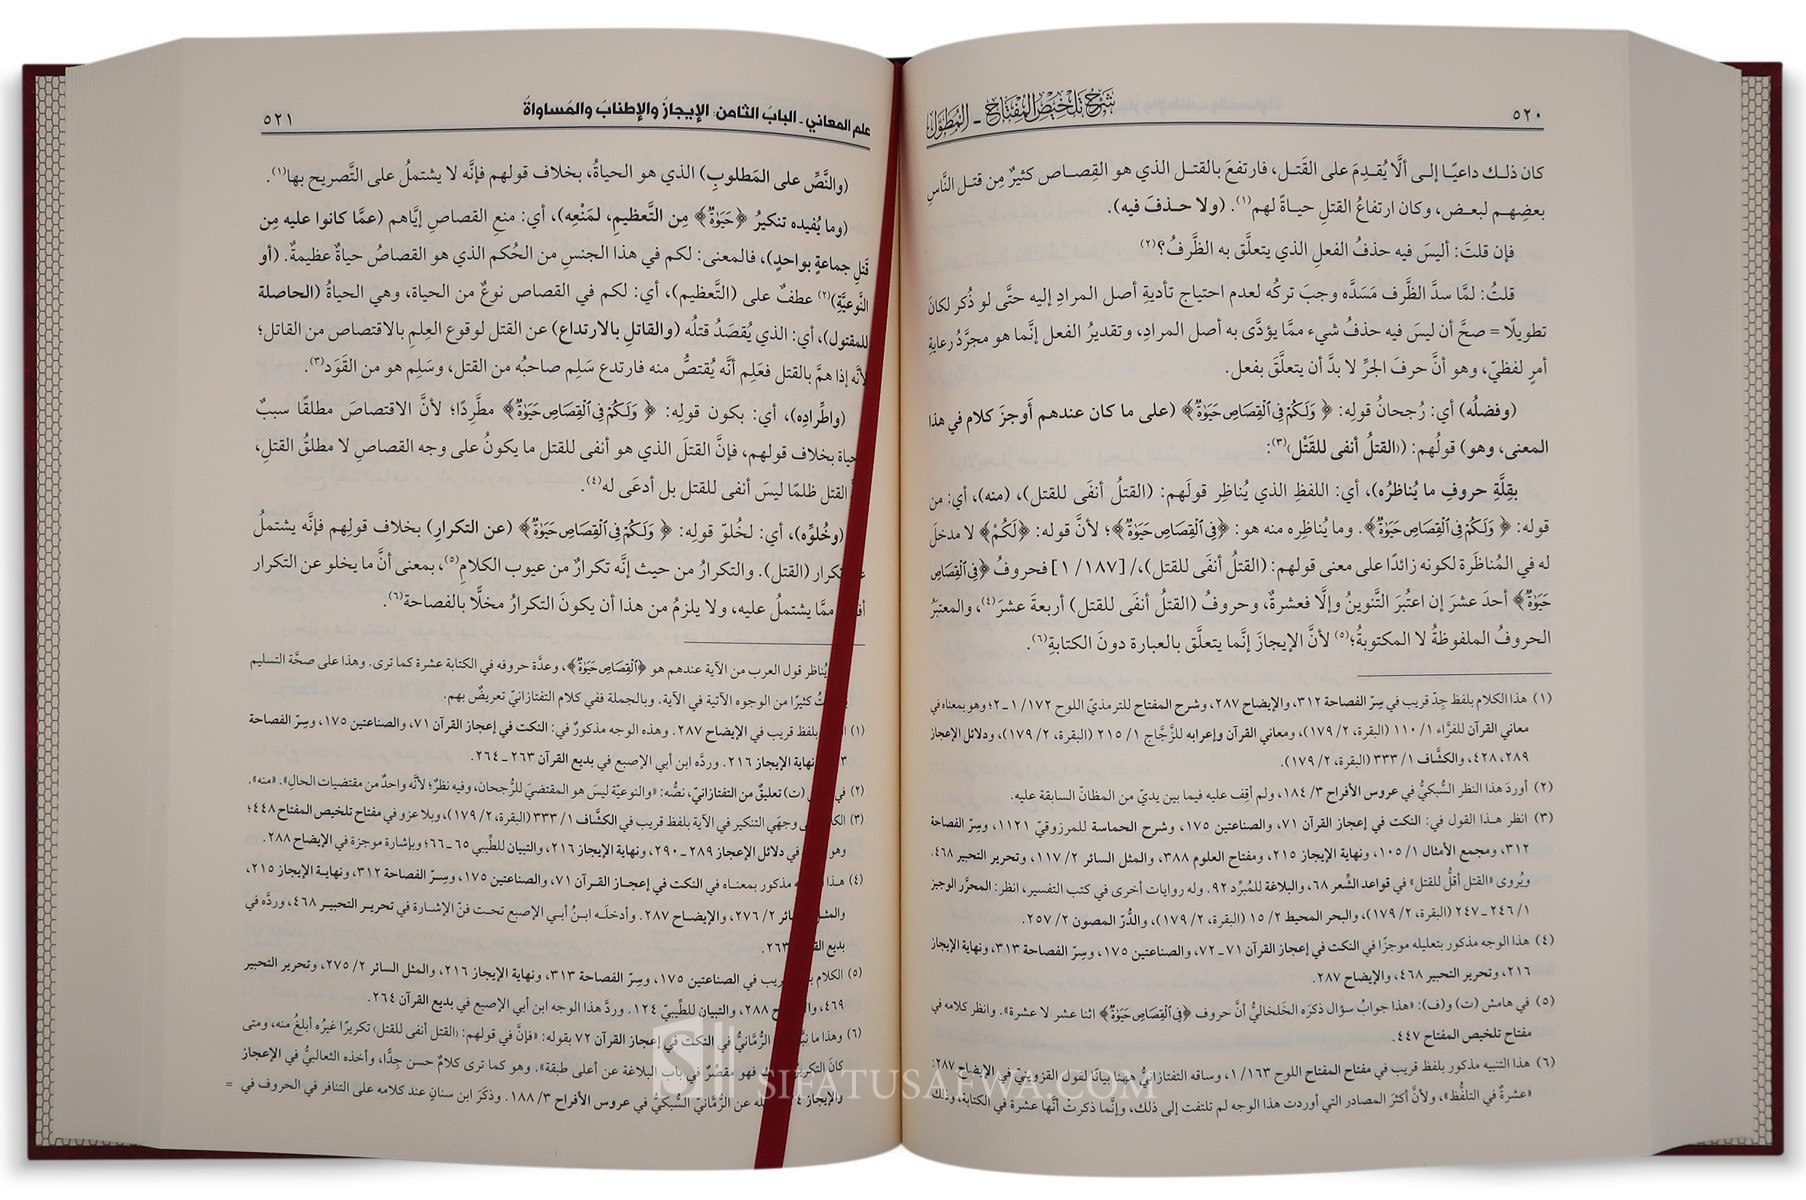 ٥٢٠
شرح تلخيص المفتاح - المطول
كان ذلك داعيًا إلى ألَّا يُقدِمَ على القَتل، فارتفعَ بالقتل الذي هو القِصاص كثيرٌ مِن قتل النَّاسِ
بعضِهم لبعض، وكان ارتفاعُ القتلِ حياةً لهم(١). (ولا حذفَ فيه).
فإن قلتَ: أليسَ فيه حذفُ الفعلِ الذي يتعلَّق به الظَّرفُ؟(٢)
قلتُ: لمَّا سدَّ الظَّرف مَسَدَّه وجبَ تركُه لعدم احتياج تأديةِ أصل المرادِ إليه حتَّى لو ذُكر لكانَ
تطويلًا = صحَّ أن ليسَ فيه حذفُ شيء ممَّا يؤدَّى به أصل المرادِ، وتقديرُ الفعل إنَّما هو مجرَّدُ رعايةِ
أمرٍ لفظيّ، وهو أنَّ حرفَ الجرِّ لا بدَّ أن يتعلَّقَ بفعل.
(وفضلُه) أي: رُجحانُ قولِه: ﴿ وَلَكُمْ فِي ٱلْقِصَاصِ حَيَوٰةٌ﴾ (على ما كان عندهم أَوجزَ كلام في هذا
المعنى، وهو) قولُهم: ((القتلُ أنفى للقَتْل)(٣):
بقِلَّةِ حروفِ ما يُناظرُه)، أي: اللفظِ الذي يُناظِر قولَهم: (القتلُ أنفَى للقتل)، (منه)، أي: من
قوله: ﴿ وَلَكُمْ فِي ٱلْقِصَاصِ حَيَوٰةٌ﴾. وما يُناظِره منه هو: ﴿فِي ٱلْقِصَاصِ حَيَوٰةٌ﴾؛ لأنَّ قوله: ﴿لَكُمْ﴾ لا مدخلَ
له في المُناظَرة لكونه زائدًا على معنى قولهم: (القتلُ أنفَى للقتل)،/[١٨٧/ ١] فحروفُ ﴿فِي ٱلْقِصَاصِ
حَيَوٰةٌ﴾ أحدَ عشرَ إن اعتُبرَ التَّنوينُ وإلَّا فعشرةٌ، وحروفُ (القتلُ أنفَى للقتل) أربعةَ عشرَ(٤)، والمعتبَرُ
الحروفُ الملفوظةُ لا المكتوبةُ؛(٥) لأنَّ الإيجازَ إنَّما يتعلَّق بالعبارة دونَ الكتابةِ(٦).
(١) هذا الكلام بلفظ جدّ قريب في سِرّ الفصاحة ٣١٢، والإيضاح ٢٨٧، وشرح المفتاح للترمذيّ اللوح ١٧٢/ ١-٢؛ وهو بمعناه في
معاني القرآن للفرَّاء ١/ ١١٠ (البقرة، ٢/ ١٧٩)، ومعاني القرآن وإعرابه للزَّجَّاج ١/ ٢١٥ (البقرة، ٢/ ١٧٩)، ودلائل الإعجاز
٢٨٩، ٤٢٨، والكشَّاف ١/ ٣٣٣ (البقرة، ٢/ ١٧٩).
(٢) أوردَ هذا النظر السُّبكيُّ في عروس الأفراح ٣/ ١٨٤، ولم أقِف عليه فيما بين يديّ من المظانّ السابقة عليه.
(٣) انظر هذا القول في: النكت في إعجاز القرآن ٧١، والصناعتين ١٧٥، وشرح الحماسة للمرزوقيّ ١١٢١، وسِرّ الفصاحة
٣١٢، ومجمع الأمثال ١/ ١٠٥، ونهاية الإيجاز ٢١٥، ومفتاح العلوم ٣٨٨، والمثل السائر ٢/ ١١٧، وتحرير التحبير ٤٦٨.
ويُروى «القتل أقلُّ للقتل» في قواعد الشِّعر ٦٨، والبلاغة للمُبرِّد ٩٢. وله روايات أخرى في كتب التفسير، انظر: المحرَّر الوجيز
١/ ٢٤٦-٢٤٧ (البقرة، ٢/ ١٧٩)، والبحر المحيط ٢/ ١٥ (البقرة، ٢/ ١٧٩)، والدُّرّ المصون ٢/ ٢٥٧.
(٤) هذا الوجه مذكور بتعليله موجزًا في النكت في إعجاز القرآن ٧١-٧٢، والصناعتين ١٧٥، وسِرّ الفصاحة ٣١٣، ونهاية الإيجاز
٢١٦، وتحرير التحبير ٤٦٨، والإيضاح ٢٨٧.
(٥) في هامش (ت) و(ف): «هذا جوابُ سؤال ذكرَه الخَلخاليُّ أنَّ حروف ﴿فِي ٱلْقِصَاصِ حَيَوٰةٌ﴾ اثنا عشر لا عشرة». وانظر كلامه في
مفتاح تلخيص المفتاح ٤٤٧.
(٦) هذا التنبيه مذكور بلفظ قريب في مفتاح المفتاح اللوح ١٦٣/ ١، وساقه التفتازانيُّ ههنا بيانًا لقول القزويني في الإيضاح ٢٨٧:
«عشرةٌ في التلفُّظ»، ولأنَّ أكثرَ المصادر التي أوردت هذا الوجه لم تلتفت إلى ذلك، وإنَّما ذكرتْ أنَّها عشرة في الكتابة، وذلك
علم المعاني - البابُ الثامن: الإيجازُ والإطنابُ والمُساواةُ
٥٢١
(والنَّصِّ على المَطلوبِ) الذي هو الحياةُ، بخلاف قولهم فإنَّه لا يشتملُ على التَّصريح بها(١).
(وما يُفيده تنكيرُ ﴿حَيَوٰةٌ﴾ مِن التَّعظيمِ، لمَنْعِه)، أي: منعِ القصاصِ إيَّاهم (عمَّا كانوا عليه مِن
قتلِ جماعةٍ بواحدٍ)، فالمعنى: لكم في هذا الجنسِ من الحُكم الذي هو القصاصُ حياةٌ عظيمةٌ. (أو
النَّوعيَّةِ)(٢) عطفٌ على (التَّعظيم)، أي: لكم في القصاص نوعٌ من الحياة، وهي الحياةُ (الحاصلة
للمقتول)، أي: الذي يُقصَدُ قتلُه (والقاتلِ بالارتداع) عن القتل لوقوع العِلمِ بالاقتصاص من القاتل؛
لأنَّه إذا همَّ بالقتل فعَلِم أنَّه يُقتصُّ منه فارتدع سَلِم صاحبُه من القتل، وسَلِم هو من القَوَد(٣).
(واطِّرادِه)، أي: بكون قولِه: ﴿ وَلَكُمْ فِي ٱلْقِصَاصِ حَيَوٰةٌ﴾ مطَّرِدًا؛ لأنَّ الاقتصاصَ مطلقًا سببٌ
حياة بخلاف قولهم، فإنَّ القتلَ الذي هو أنفى للقتل ما يكونُ على وجه القصاصِ لا مطلقُ القتلِ،
القتل ظلمًا ليسَ أنفى للقتل بل أدعَى له(٤).
(وخُلوِّه)، أي: لخُلوّ قولِه: ﴿ وَلَكُمْ فِي ٱلْقِصَاصِ حَيَوٰةٌ﴾ (عن التكرارِ) بخلاف قولهم فإنَّه يشتملُ
تكرار (القتل). والتكرارُ من حيث إنَّه تكرارٌ من عيوب الكلامِ(٥)، بمعنى أنَّ ما يخلو عن التكرار
ممَّا يشتملُ عليه، ولا يلزمُ من هذا أن يكونَ التكرارُ مخلًّا بالفصاحة(٦).
يُناظر قول العرب من الآية عندهم هو ﴿ٱلْقِصَاصِ حَيَوٰةٌ﴾، وعدَّة حروفه في الكتابة عشرة كما ترى. وهذا على صحَّة التسليم
كثيرًا من الوجوه الآتية في الآية. وبالجملة ففي كلام التفتازانيّ تعريضٌ بهم.
(١) بلفظ قريب في الإيضاح ٢٨٧. وهذه الوجه مذكورٌ في: النكت في إعجاز القرآن ٧١، والصناعتين ١٧٥، وسِرّ الفصاحة
ونهاية الإيجاز ٢١٦. وردَّه ابن أبي الإصبع في بديع القرآن ٢٦٣-٢٦٤.
(٢) في (ت) تعليقٌ من التفتازانيّ، نصُّه: «والنوعيّة ليسَ هو المقتضيَ للرُّجحان، وفيه نظرٌ؛ لأنَّه واحدٌ من مقتضيات الحال». «منه».
(٣) وجهَي التنكير في الآية بلفظ قريب في الكشَّاف ١/ ٣٣٣ (البقرة، ٢/ ١٧٩)، وبلا عزو في مفتاح تلخيص المفتاح ٤٤٨؛
وهو في دلائل الإعجاز ٢٨٩-٢٩٠، ونهاية الإيجاز ٢١٦، والتبيان للطِّيبي ٦٥-٦٦؛ وبإشارة موجزة في الإيضاح ٢٨٨.
(٤) هذا مذكور بمعناه في النكت في إعجاز القرآن ٧١، والصناعتين ١٧٥، وسِرّ الفصاحة ٣١٢، ونهاية الإيجاز ٢١٥،
والمثل السائر ٢/ ٢٧٦، والإيضاح ٢٨٧. وأدخلَه ابنُ أبي الإصبع تحت فنّ الإشارة في تحرير التحبير ٤٦٨، وردَّه في
بديع القرآن ٢٦٣.
(٥) الكلام قريب في الصناعتين ١٧٥، وسِرّ الفصاحة ٣١٣، ونهاية الإيجاز ٢١٦، والمثل السائر ٢/ ٢٧٥، وتحرير التحبير
٤٦٩، ٢٨٨، والتبيان للطِّيبيّ ١٢٤. وردَّ هذا الوجه ابن أبي الإصبع في بديع القرآن ٢٦٤.
(٦) وهذا ما الرُّمَّانيُّ في النكت في إعجاز القرآن ٧٢ بقوله: «فإنَّ في قولهم: (القتل أنفى للقتل) تكريرًا غيرُه أبلغُ منه، ومتى
كانَ التكرير فهو مقصِّرٌ في باب البلاغة عن أعلى طبقة». وهو كما ترى كلامٌ حسن جدًّا، وأخذه الثعالبيُّ في الإعجاز
والإيجاز عن الرُّمَّانيّ السُّبكيُّ في عروس الأفراح ٣/ ١٨٨. وذكَرَ ابن سنانٍ عند كلامه على التنافر في الحروف في =
SIFATUSAFWA.COM